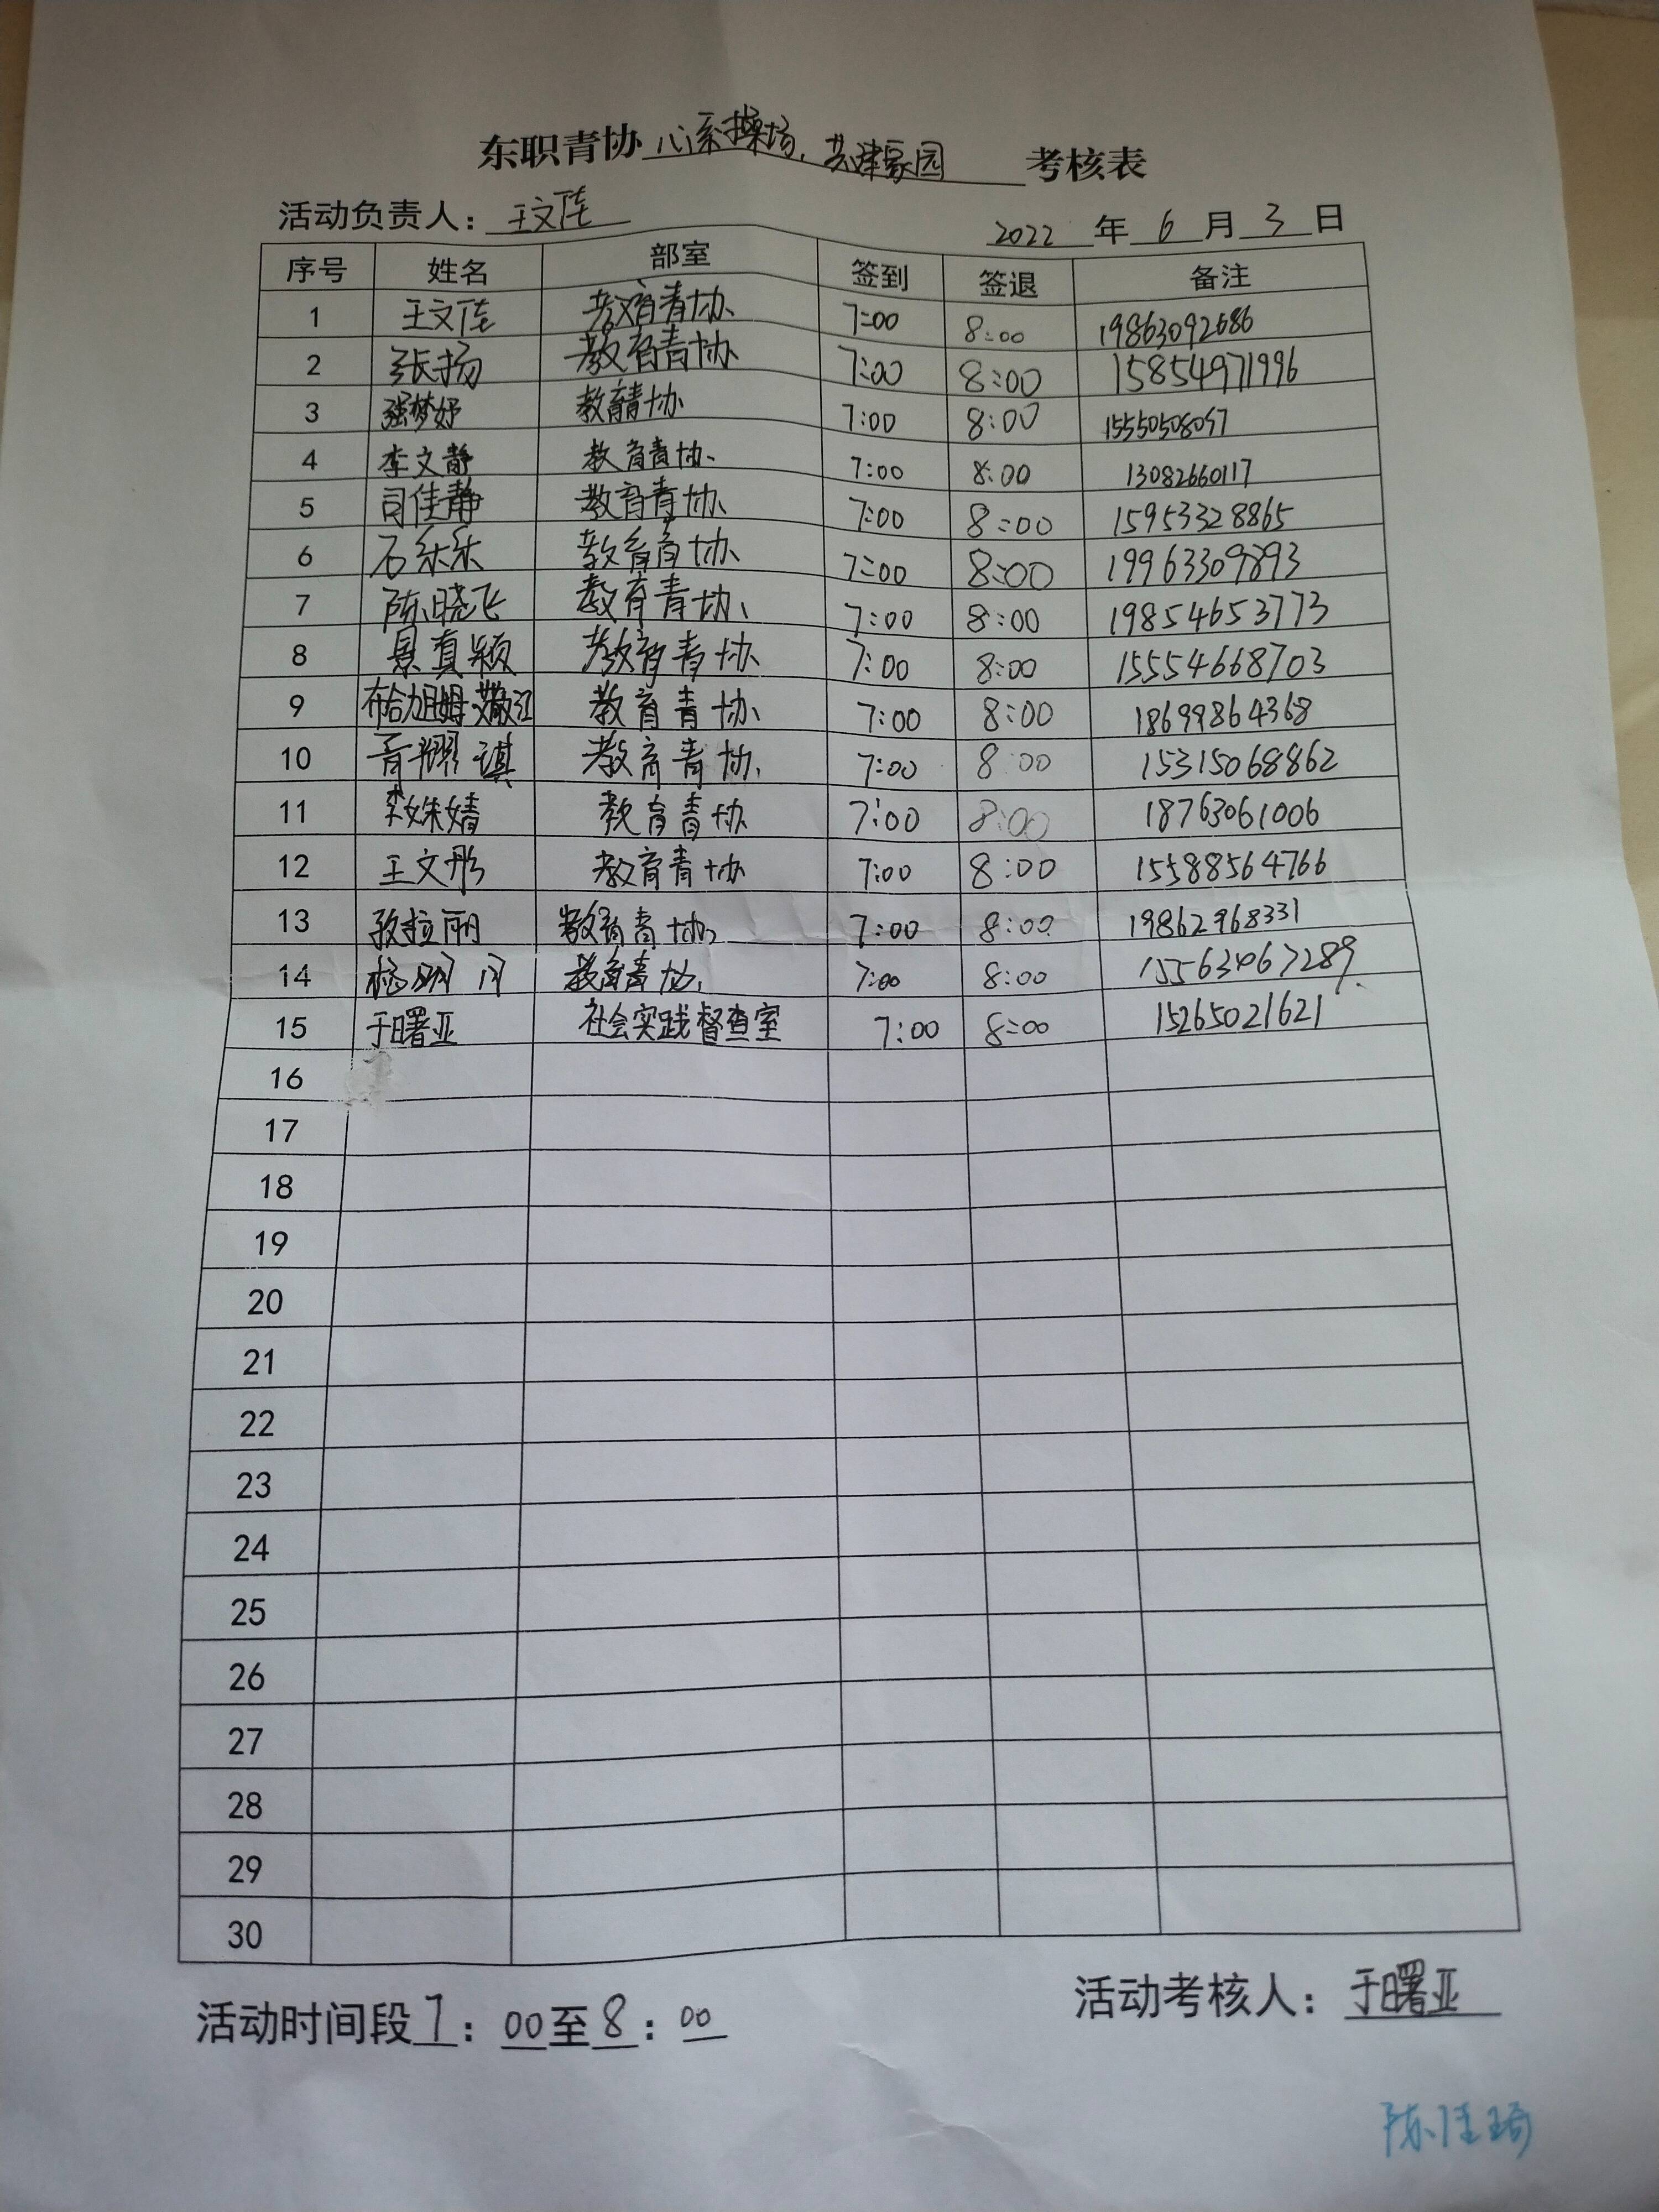 东职青协 心系操场，共建家园 考核表
活动负责人：王文佳 2022 年 6 月 3 日
序号 姓名 部室 签到 签退 备注
1 王文佳 教育青协 7:00 8:00 19863092686
2 张扬 教育青协 7:00 8:00 15854971996
3 强梦妤 教育青协 7:00 8:00 15550508057
4 李文静 教育青协 7:00 8:00 13082660117
5 司佳静 教育青协 7:00 8:00 15953328865
6 石乐乐 教育青协 7:00 8:00 19963309893
7 陈晓飞 教育青协 7:00 8:00 19854653773
8 景真颖 教育青协 7:00 8:00 15554668703
9 教育青协 7:00 8:00 18699864368
10 教育青协 7:00 8:00 15315068862
11 李姝婧 教育青协 7:00 8:00 18763061006
12 王文彤 教育青协 7:00 8:00 15588564766
13 教育青协 7:00 8:00 19862968331
14 杨明月 教育青协 7:00 8:00 15563067289
15 于曙亚 社会实践督查室 7:00 8:00 15265021621
16
17
18
19
20
21
22
23
24
25
26
27
28
29
30
活动时间段 7：00至8：00 活动考核人：于曙亚
陈佳琦